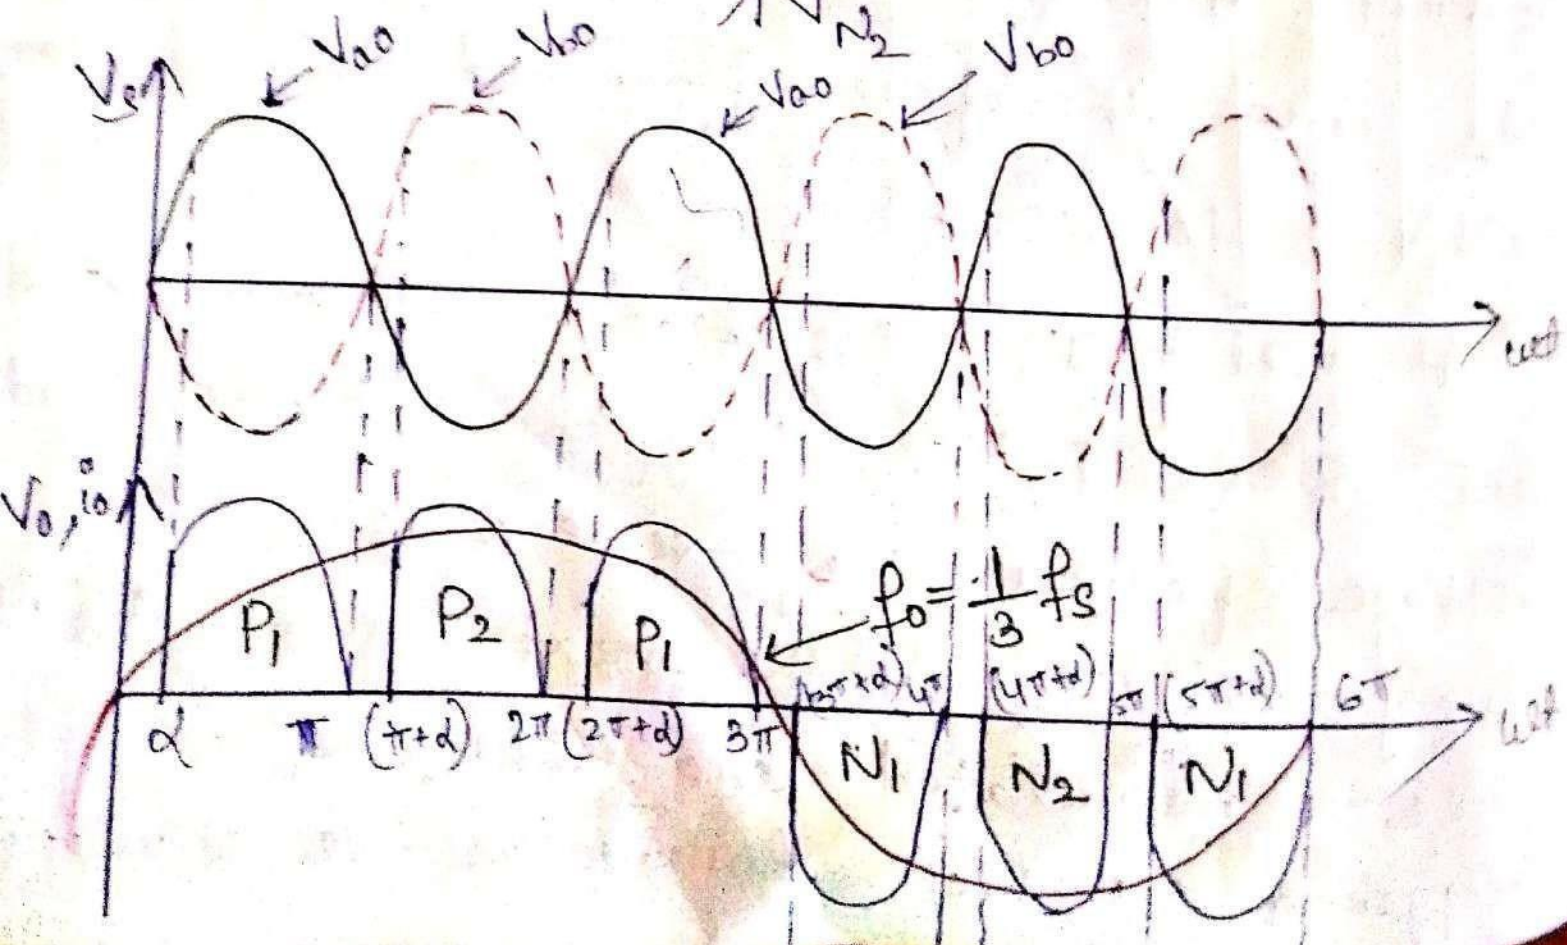 N₂
Vs
Va0
Vb0
Va0
Vb0
ωt
V₀, i₀
P₁
P₂
P₁
f₀ = 1/3 fs
α
π
(π+α)
2π
(2π+α)
3π
(3π+α)
4π
(4π+α)
5π
(5π+α)
6π
ωt
N₁
N₂
N₁